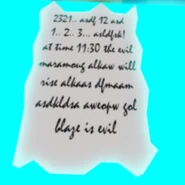 2321.. asdf 12 asd
1.. 2.. 3... asldfsk!
at time 11:30 the evil
masamoug alkaw will
rise alkaas dfmaam
asdkldsa aweopw gol
blaze is evil